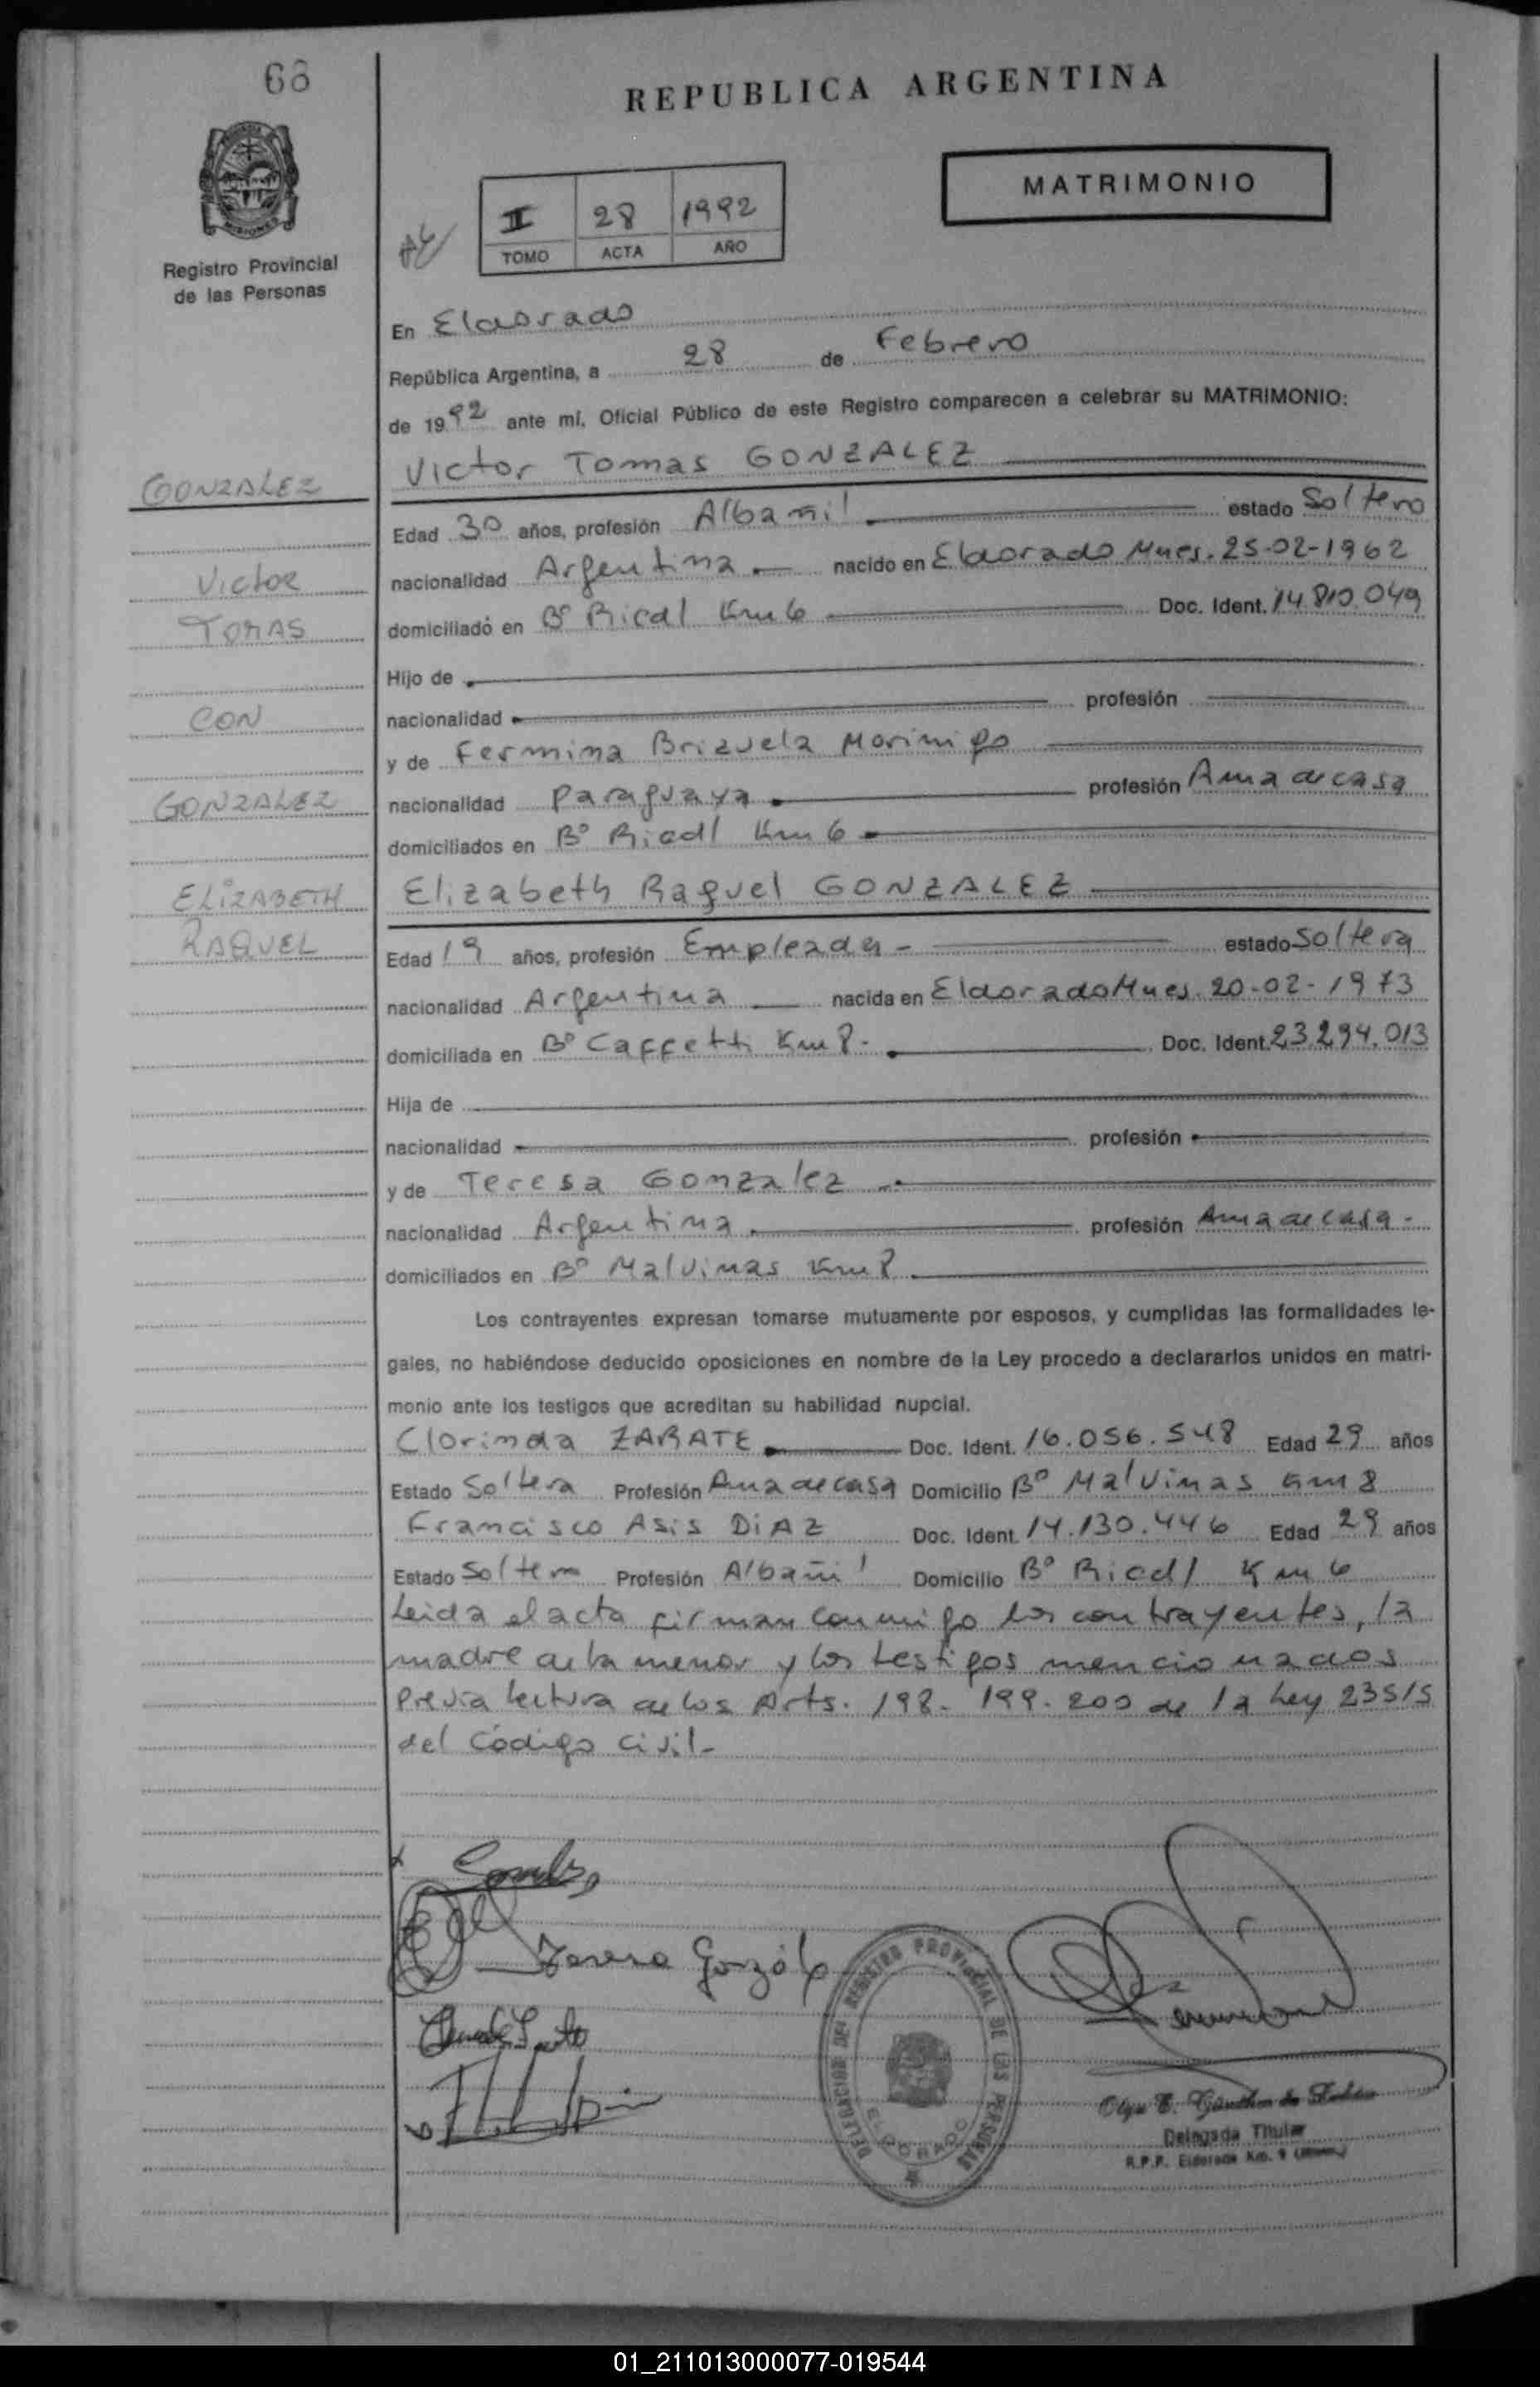 68
REPUBLICA ARGENTINA
MATRIMONIO
II 28 1992
TOMO ACTA AÑO
Registro Provincial
de las Personas
En Eldorado
República Argentina, a 28 de Febrero
de 1992 ante mí, Oficial Público de este Registro comparecen a celebrar su MATRIMONIO:
Victor Tomas GONZALEZ
GONZALEZ
Edad 30 años, profesión Albañil estado Soltero
nacionalidad Argentina nacido en Eldorado Mnes. 25-02-1962
VICTOR
domiciliado en Bº Riedl Km 6 Doc. Ident. 14.810.049
TOMAS
Hijo de
nacionalidad profesión
CON
y de Fermina Brizuela Morinigo
nacionalidad Paraguaya profesión Ama de casa
GONZALEZ
domiciliados en Bº Riedl Km 6
Elizabeth Raquel GONZALEZ
ELIZABETH
RAQUEL
Edad 19 años, profesión Empleada - estado Soltera
nacionalidad Argentina nacida en Eldorado Mnes. 20-02-1973
domiciliada en Bº Caffetti Km 8.- Doc. Ident. 23.294.013
Hija de
nacionalidad profesión
y de Teresa Gonzalez
nacionalidad Argentina profesión Ama de casa -
domiciliados en Bº Malvinas Km 8
Los contrayentes expresan tomarse mutuamente por esposos, y cumplidas las formalidades le-
gales, no habiéndose deducido oposiciones en nombre de la Ley procedo a declararlos unidos en matri-
monio ante los testigos que acreditan su habilidad nupcial.
Clorinda ZARATE Doc. Ident. 16.056.548 Edad 29 años
Estado Soltera Profesión Ama de casa Domicilio Bº Malvinas Km 8
Francisco Asis DIAZ Doc. Ident. 14.130.446 Edad 29 años
Estado Soltero Profesión Albañil Domicilio Bº Riedl Km 6
Leida el acta firman conmigo los contrayentes, la
madre de la menor y los testigos mencionados
Previa lectura de los Arts. 198- 199- 200 de la Ley 23515
del Código civil-
Teresa Gonzále
DELEGACION DEL REGISTRO PROVINCIAL DE LAS PERSONAS
ELDORADO
Delegada Titular
R.P.P. Eldorado Km. 9
01_211013000077-019544